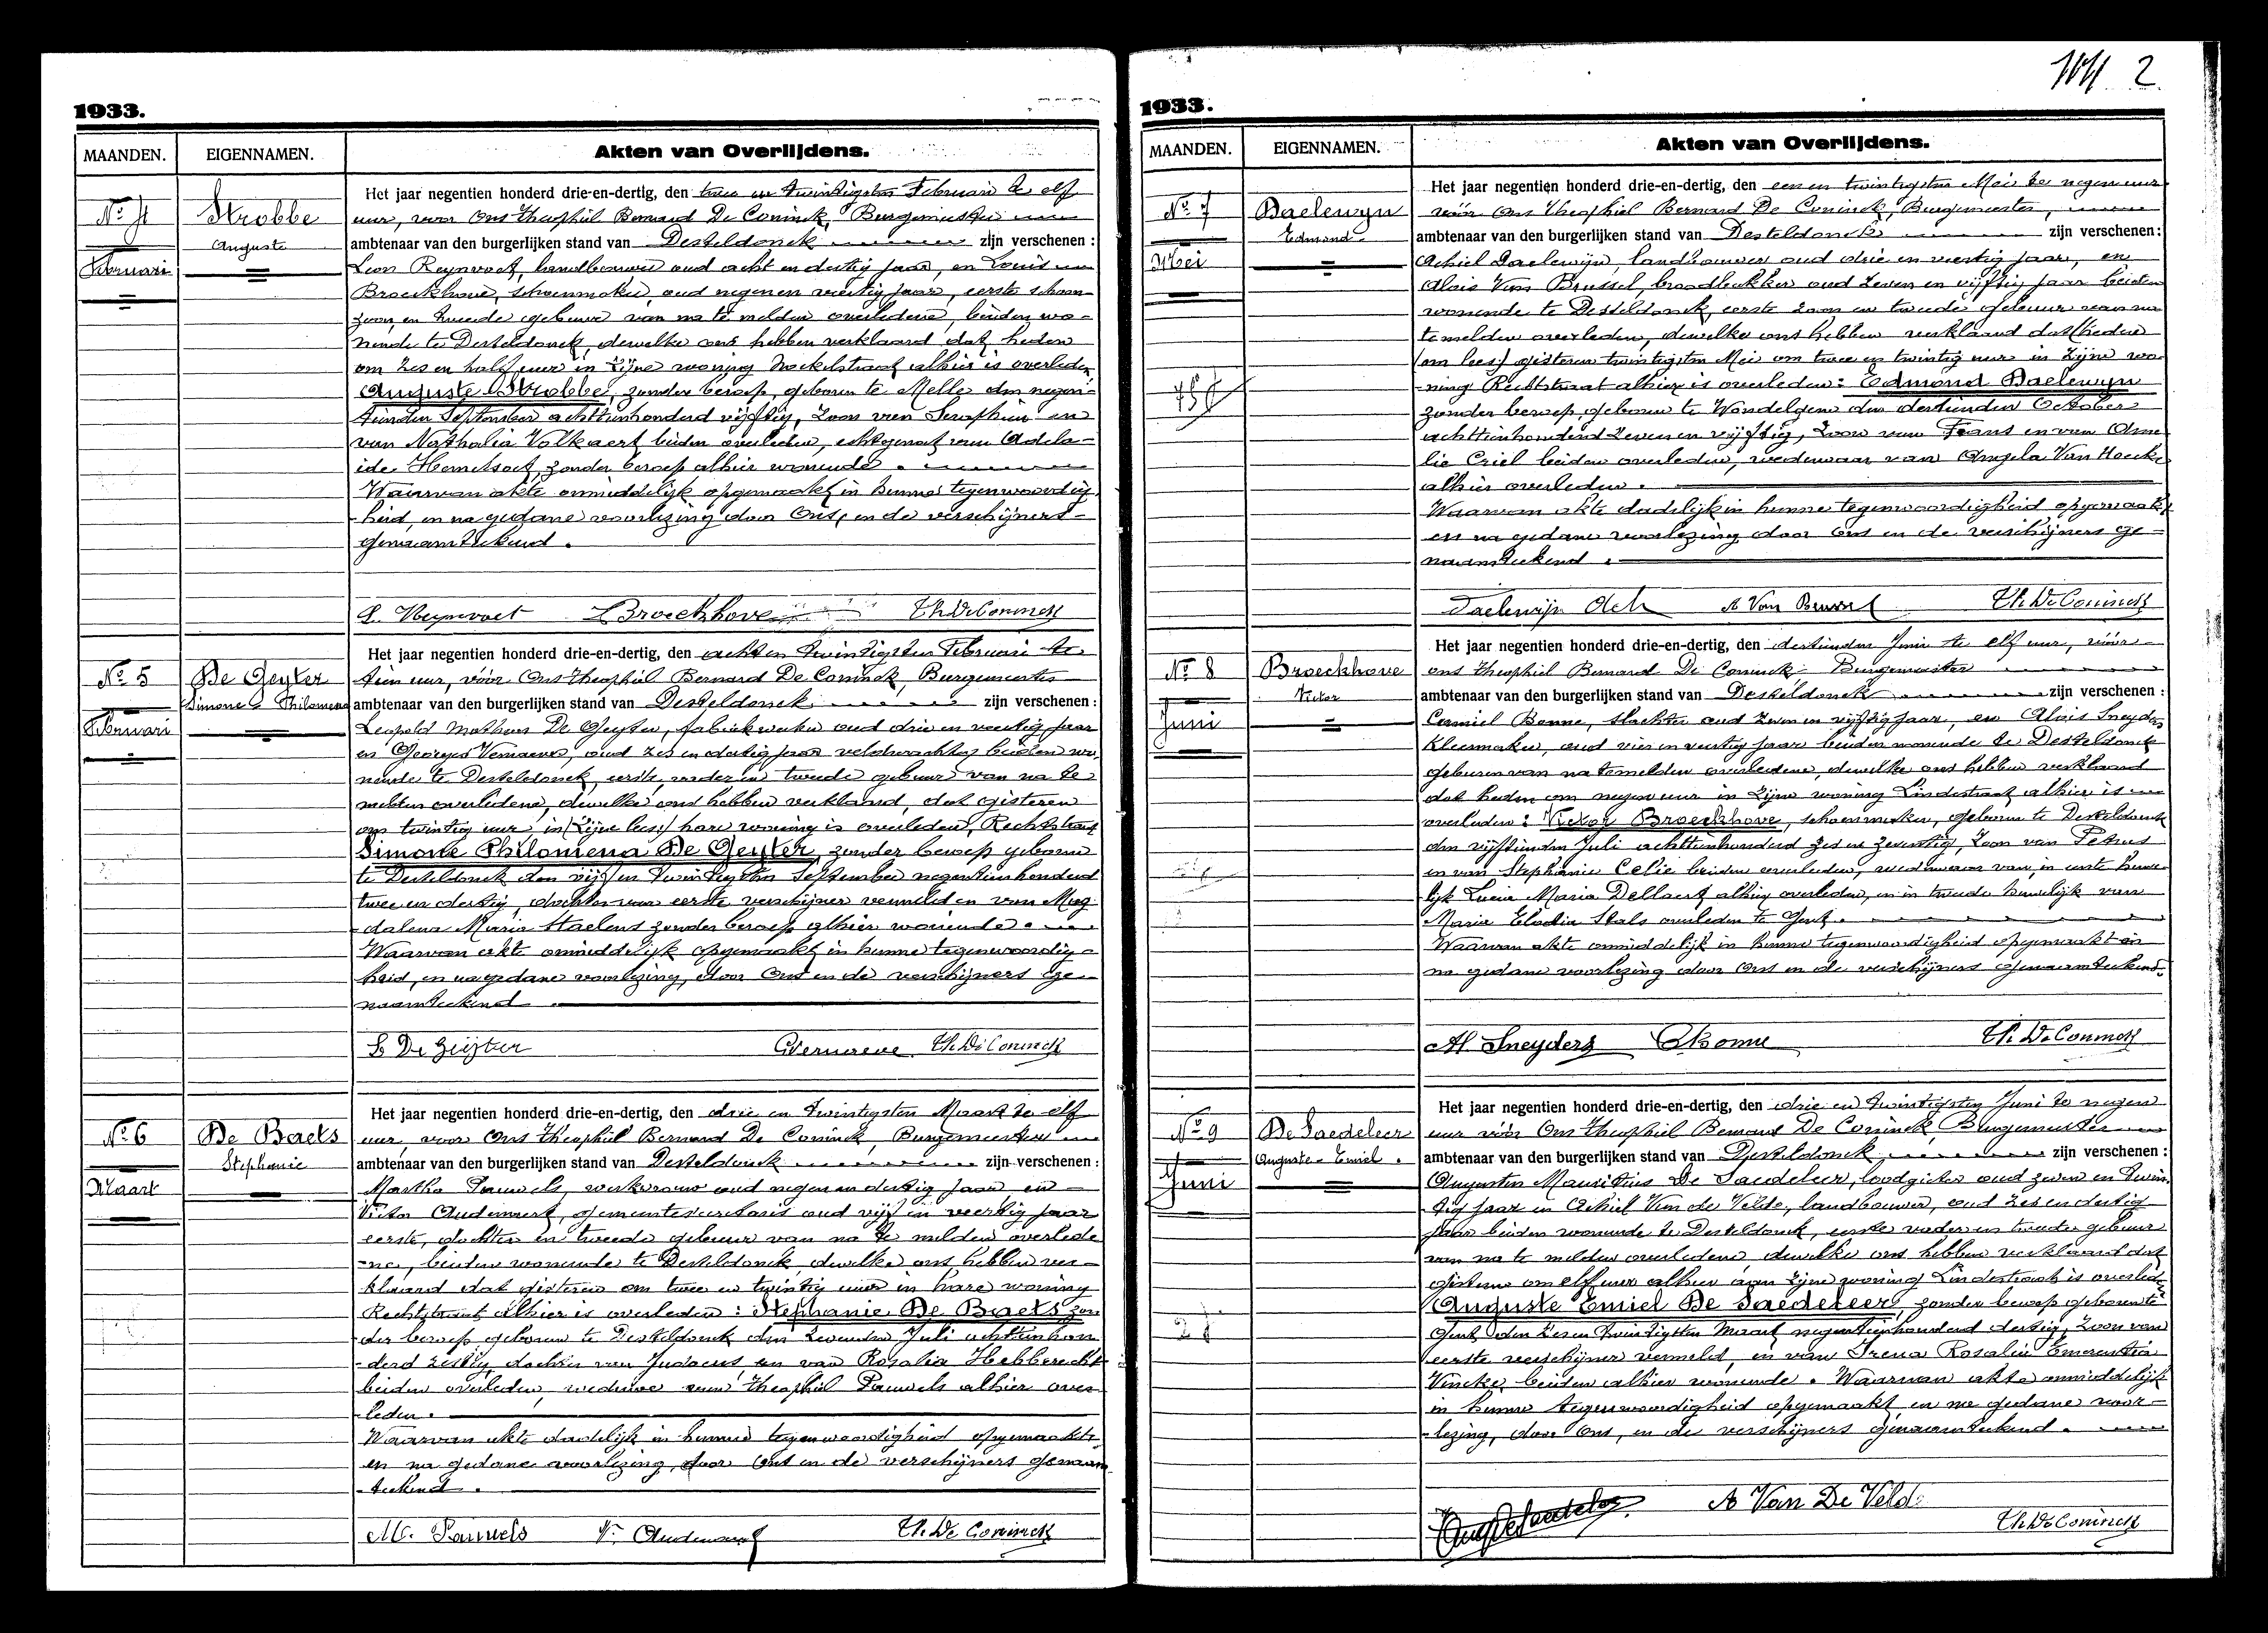 1933.
MAANDEN. EIGENNAMEN. Akten van Overlijdens.
Het jaar negentien honderd drie-en-dertig, den twee en twintigsten Februari te elf
No 4 Strobbe uur, voor Ons Theophiel Bernard De Coninck, Burgemeester
Auguste ambtenaar van den burgerlijken stand van Desteldonck zijn verschenen :
Februari Leon Reynvoet, landbouwer oud acht en dertig jaar, en Louis
Broeckhove, schoenmaker, oud negen en veertig jaar, eerste schoon
zoon, en tweede gebuur van na te melden overledene, beiden wo-
nende te Desteldonck, dewelke ons hebben verklaard dat heden
om zes en half uur in zijne woning alhier is overleden
Auguste Strobbe, zonder beroep, geboren te Melle den negen-
tienden September achttienhonderd vijftig, zoon van Seraphin en
van Nathalia Volkaert beiden overleden, echtgenoot van Adela-
ide Hemelsoet, zonder beroep alhier wonende.
Waarvan akte onmiddelijk opgemaakt in hunne tegenwoordig-
heid, en na gedane voorlezing door Ons, en de verschijners
genaamteekend.
L. Reynvoet Broeckhove Th. De Coninck
Het jaar negentien honderd drie-en-dertig, den acht en twintigsten Februari te
No 5 De Geyter tien uur, vóór Ons Theophiel Bernard De Coninck, Burgemeester
Simone Philomena ambtenaar van den burgerlijken stand van Desteldonck zijn verschenen :
Februari Leopold Matheus De Geyter, fabriekwerker oud drie en veertig jaar
en Georges Vernaeve, oud zes en dertig jaar veldwachter beiden wo-
nende te Desteldonck, eerste, vader en tweede gebuur van na te
melden overledene, dewelke ons hebben verklaard, dat gisteren
om twintig uur, in (zijne lees:) hare woning is overleden, Rechtstraat
Simone Philomena De Geyter, zonder beroep geboren
te Desteldonck den vijf en twintigsten September negentienhonderd
twee en dertig, dochter van eerste verschijner vermeld en van Mag-
dalena Maria Staelens zonder beroep alhier wonende.
Waarvan akte onmiddelijk opgemaakt in hunne tegenwoordig-
heid, en na gedane voorlezing, door Ons en de verschijners ge-
naamteekend.
L De Geijter GVernaeve Th. De Coninck
Het jaar negentien honderd drie-en-dertig, den drie en twintigsten Maart te elf
No 6 De Baets uur, voor Ons Theophiel Bernard De Coninck, Burgemeester
Stephanie ambtenaar van den burgerlijken stand van Desteldonck zijn verschenen :
Maart Martha Pauwels, werkvrouw oud negen en dertig jaar, en
Victor Audenaert, gemeentesecretaris oud vijf en veertig jaar
eerste, dochter en tweede gebuur van na te melden overlede-
ne, beiden wonende te Desteldonck, dewelke ons hebben ver-
klaard dat gisteren om twee en twintig uur in hare woning
Rechtstraat alhier is overleden : Stephanie De Baets zon
der beroep geboren te Desteldonck den zevenden Juli achttienhon
derd zestig, dochter van Judocus en van Rosalia Hebberecht
beiden overleden, weduwe van Theophiel Pauwels alhier over-
leden.
Waarvan akte dadelijk in hunne tegenwoordigheid opgemaakt
en na gedane voorlezing, door Ons en de verschijners genaam
teekend.
M. Pauwels V. Audenaert Th. De Coninck
2
1933.
MAANDEN. EIGENNAMEN. Akten van Overlijdens.
Het jaar negentien honderd drie-en-dertig, den een en twintigsten Mei te negen uur
No 7 Daelewyn vóór Ons Theophiel Bernard De Coninck, Burgemeester,
Edmond ambtenaar van den burgerlijken stand van Desteldonck zijn verschenen :
Mei Achiel Daelewijn, landbouwer oud drie en veertig jaar, en
Alois Van Brussel, broodbakker oud zeven en vijftig jaar beiden
wonende te Desteldonck, eerste zoon en tweede gebuur van na
te melden overleden, dewelke ons hebben verklaard dat (heden
om lees:) gisteren twintigsten Mei om twee en twintig uur in zijne wo-
ning Rechtstraat alhier is overleden : Edmond Daelewyn
zonder beroep, geboren te Wondelgem den dertienden October
achttienhonderd zeven en vijftig, zoon van Frans en van Ame
lie Criel beiden overleden, weduwnaar van Angela Van Hoecke
alhier overleden.
Waarvan akte dadelijk in hunne tegenwoordigheid opgemaakt
en na gedane voorlezing door Ons en de verschijners ge-
naamteekend.
Daelewijn Ach A Van Brussel Th. De Coninck
Het jaar negentien honderd drie-en-dertig, den dertienden Juni te elf uur, vóór
No 8 Broeckhove ons Theophiel Bernard De Coninck Burgemeester
Victor ambtenaar van den burgerlijken stand van Desteldonck zijn verschenen :
Juni Camiel Bonne, slachter oud zeven en vijftig jaar, en Alois Sneyders
kleermaker, oud vier en veertig jaar beiden wonende te Desteldonck
geburen van na te melden overledene, dewelke ons hebben verklaard
dat heden om negen uur in zijne woning Lindestraat alhier is
overleden : Victor Broeckhove, schoenmaker, geboren te Desteldonck
den vijftienden Juli achttienhonderd zes en zeventig, zoon van Petrus
en van Stephanie Celie beiden overleden, weduwnaar van, in eerste huwe-
lijk Lucia Maria Dellaert alhier overleden, en in tweede huwelijk van
Maria Elodia Stals overleden te Gent.
Waarvan akte onmiddelijk in hunne tegenwoordigheid opgemaakt en
na gedane voorlezing door Ons en de verschijners genaamteekend.
Al. Sneyders CBonne Th. De Coninck
Het jaar negentien honderd drie-en-dertig, den drie en twintigsten Juni te negen
No 9 De Saedeleer uur vóór Ons Theophiel Bernard De Coninck, Burgemeester
Auguste Emiel. ambtenaar van den burgerlijken stand van Desteldonck zijn verschenen :
Juni Augustin Mauritius De Saedeleer, loodgieter oud zeven en twin-
tig jaar en Achiel Van de Velde, landbouwer, oud zes en dertig
jaar beiden wonende te Desteldonck, eerste vader en tweede gebuur
van na te melden overledene dewelke ons hebben verklaard dat
gisteren om elf uur alhier aan zijne woning Lindestraat is overleden
Auguste Emiel De Saedeleer, zonder beroep geboren te
Gent, den zes en twintigsten Maart negentienhonderd dertig, zoon van
eerste verschijner vermeld, en van Irena Rosalie Emerentia
Vincke, beiden alhier wonende. Waarvan akte onmiddelijk
in hunne tegenwoordigheid opgemaakt en na gedane voor-
lezing, door Ons, en de verschijners genaamteekend.
Aug De Saedeleer A Van De Velde
Th. De Coninck